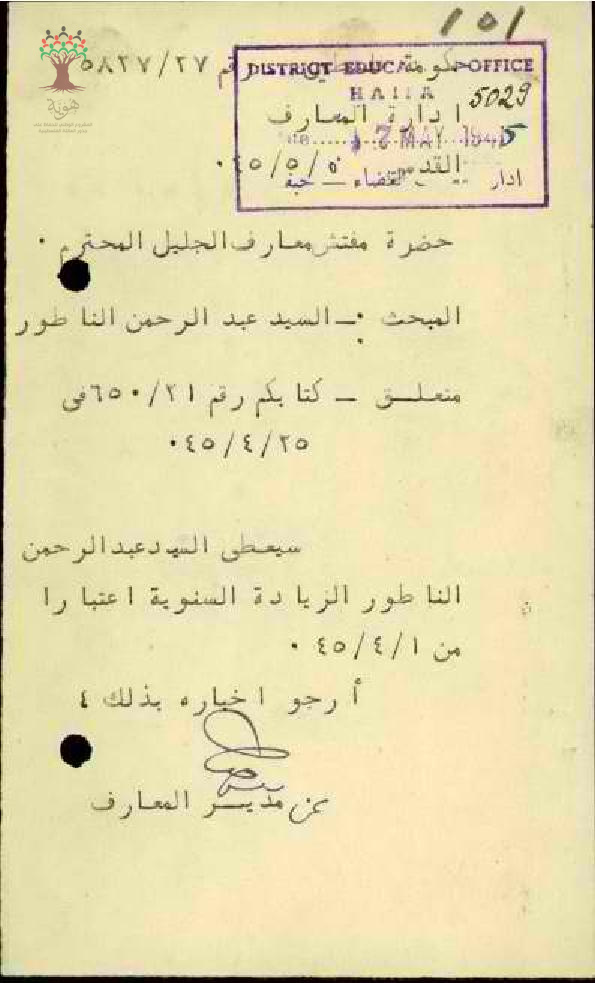 151
حكومة فلسطين رقم ٥٨٢٧/٢٧
DISTRICT EDUCA OFFICE
HAIFA
5029
ادارة المعارف
17 MAY 1945
القدس ٤٥/٥/٥٠
القضاء — حيفا
حضرة مفتش معارف الجليل المحترم ٠
المبحث :ــ السيد عبد الرحمن الناطور
متعلـق ــ كتابكم رقم ٦٥٠/٢١ في
٤٥/٤/٢٥٠
سيعطى السيد عبدالرحمن
الناطور الزيادة السنوية اعتبارا
من ٤٥/٤/١ ٠
أرجو اخباره بذلك ٤
عن مديـر المعارف
هوية